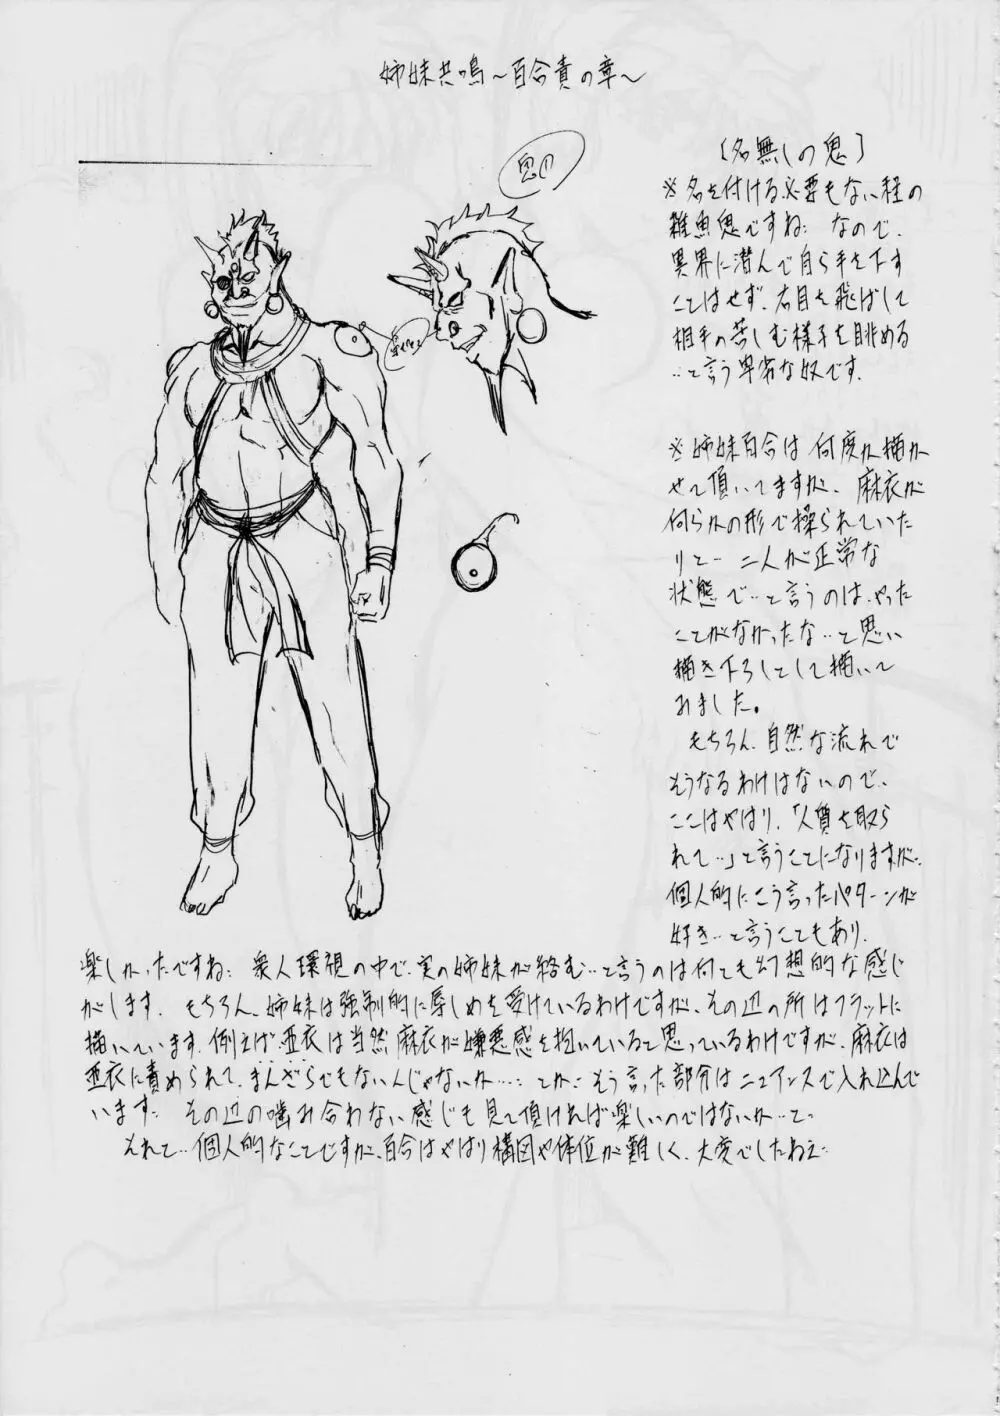 姉妹共鳴～百合責の章～
鬼の
[名無しの鬼]
※名を付ける必要もない程の
雑魚鬼ですね… なので、
異界に潜んで自ら手を下す
ことはせず、右目を飛ばして
相手の苦しむ様子を眺める
…と言う卑劣な奴です。
※姉妹百合は何度か描か
せて頂いてますが、麻衣が
何らかの形で操られていた
りと… 二人が正常な
状態で…と言うのは、やった
ことがなかったな…と思い
描き下ろしとして描いて
みました。
もちろん、自然な流れで
そうなるわけはないので、
ここはやはり、「人質を取ら
れて…」と言うことになりますが…
個人的にこう言ったパターンが
好き…と言うこともあり、
楽しかったですね… 衆人環視の中で、実の姉妹が絡む…と言うのは何とも幻想的な感じ
がします。 もちろん、姉妹は強制的に辱しめを受けているわけですが、その辺の所はフラットに
描いています。例えば、亜衣は当然麻衣が嫌悪感を抱いていると思っているわけですが、麻衣は
亜衣に責められて、まんざらでもないんじゃないか…… とか… そう言った部分はニュアンスで入れ込んで
います… その辺の噛み合わない感じも見て頂ければ楽しいのではないか…と…
それと… 個人的なことですが、百合はやはり構図や体位が難しく、大変でしたねぇ…